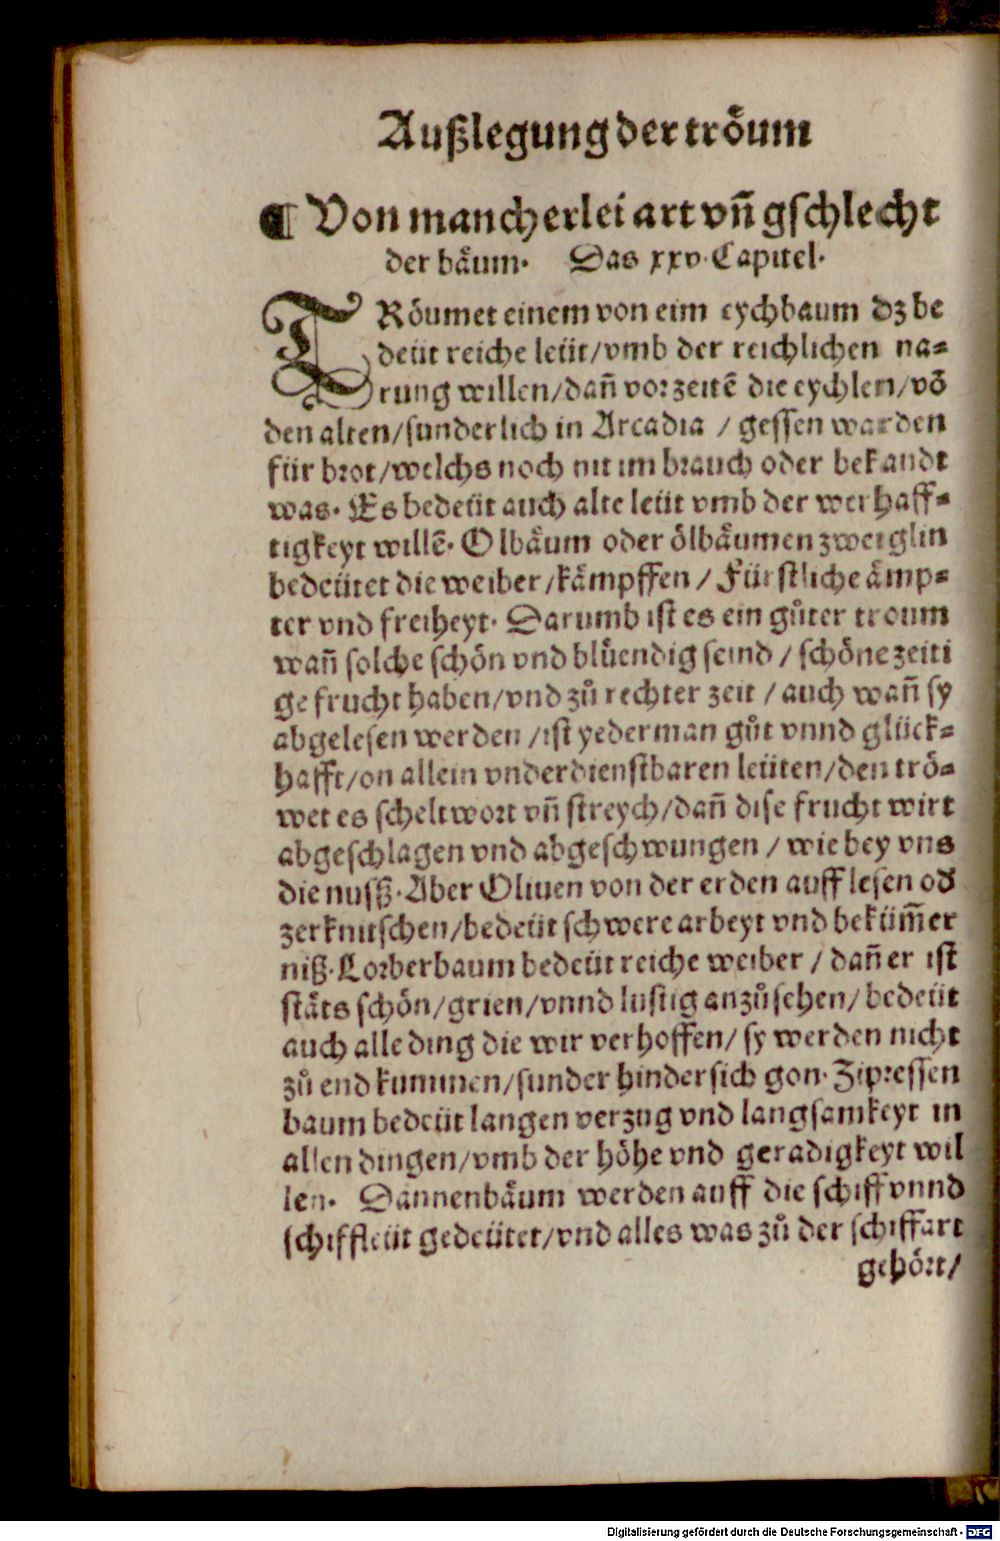 Außlegung der troͤum
¶ Von mancherlei art vñ gschlecht
der baͤum. Das xxv. Capitel.
TRoͤumet einem von eim eychbaum dz be
deüt reiche leüt/vmb der reichlichen na⸗
rung willen/dañ vorzeitẽ die eychlen/võ
den alten/sunderlich in Arcadia / gessen warden
für brot/welchs noch nit im brauch oder bekandt
was. Es bedeüt auch alte leüt vmb der werhaff⸗
tigkeyt willẽ. Olbaͤum oder oͤlbaͤumen zweiglin
bedeütet die weiber/kaͤmpffen / Fürstliche aͤmp⸗
ter vnd freiheyt. Darumb ist es ein guͦter troum
wañ solche schoͤn vnd bluͤendig seind / schoͤne zeiti
ge frucht haben/vnd zuͦ rechter zeit / auch wañ sy
abgelesen werden /ist yederman guͦt vnnd glück⸗
hafft/on allein vnderdienstbaren leüten/den troͤ⸗
wet es scheltwort vñ streych/dañ dise frucht wirt
abgeschlagen vnd abgeschwungen / wie bey vns
die nussz. Aber Oliuen von der erden auff lesen od
zerknitschen/bedeüt schwere arbeyt vnd beküm̃er
niß. Lorberbaum bedeüt reiche weiber / dañ er ist
staͤts schoͤn/grien/vnnd lustig anzuͦsehen/ bedeüt
auch alle ding die wir verhoffen/ sy werden nicht
zuͦ end kummen/sunder hindersich gon. Zipressen
baum bedeüt langen verzug vnd langsamkeyt in
allen dingen/vmb der hoͤhe vnd geradigkeyt wil
len. Dannenbaͤum werden auff die schiff vnnd
schiffleüt gedeütet/vnd alles was zuͦ der schiffart
gehoͤrt/
Digitalisierung gefördert durch die Deutsche Forschungsgemeinschaft - DFG